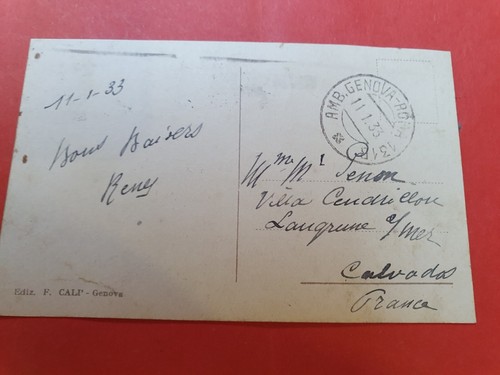 11-1-33
Bons Baisers
René
Ediz. F. CALI' - Genova
AMB. GENOVA-ROMA
11.1.33
131
Mme Mr Tenon
Villa Cendrillon
Langrune s/mer
Calvados
France